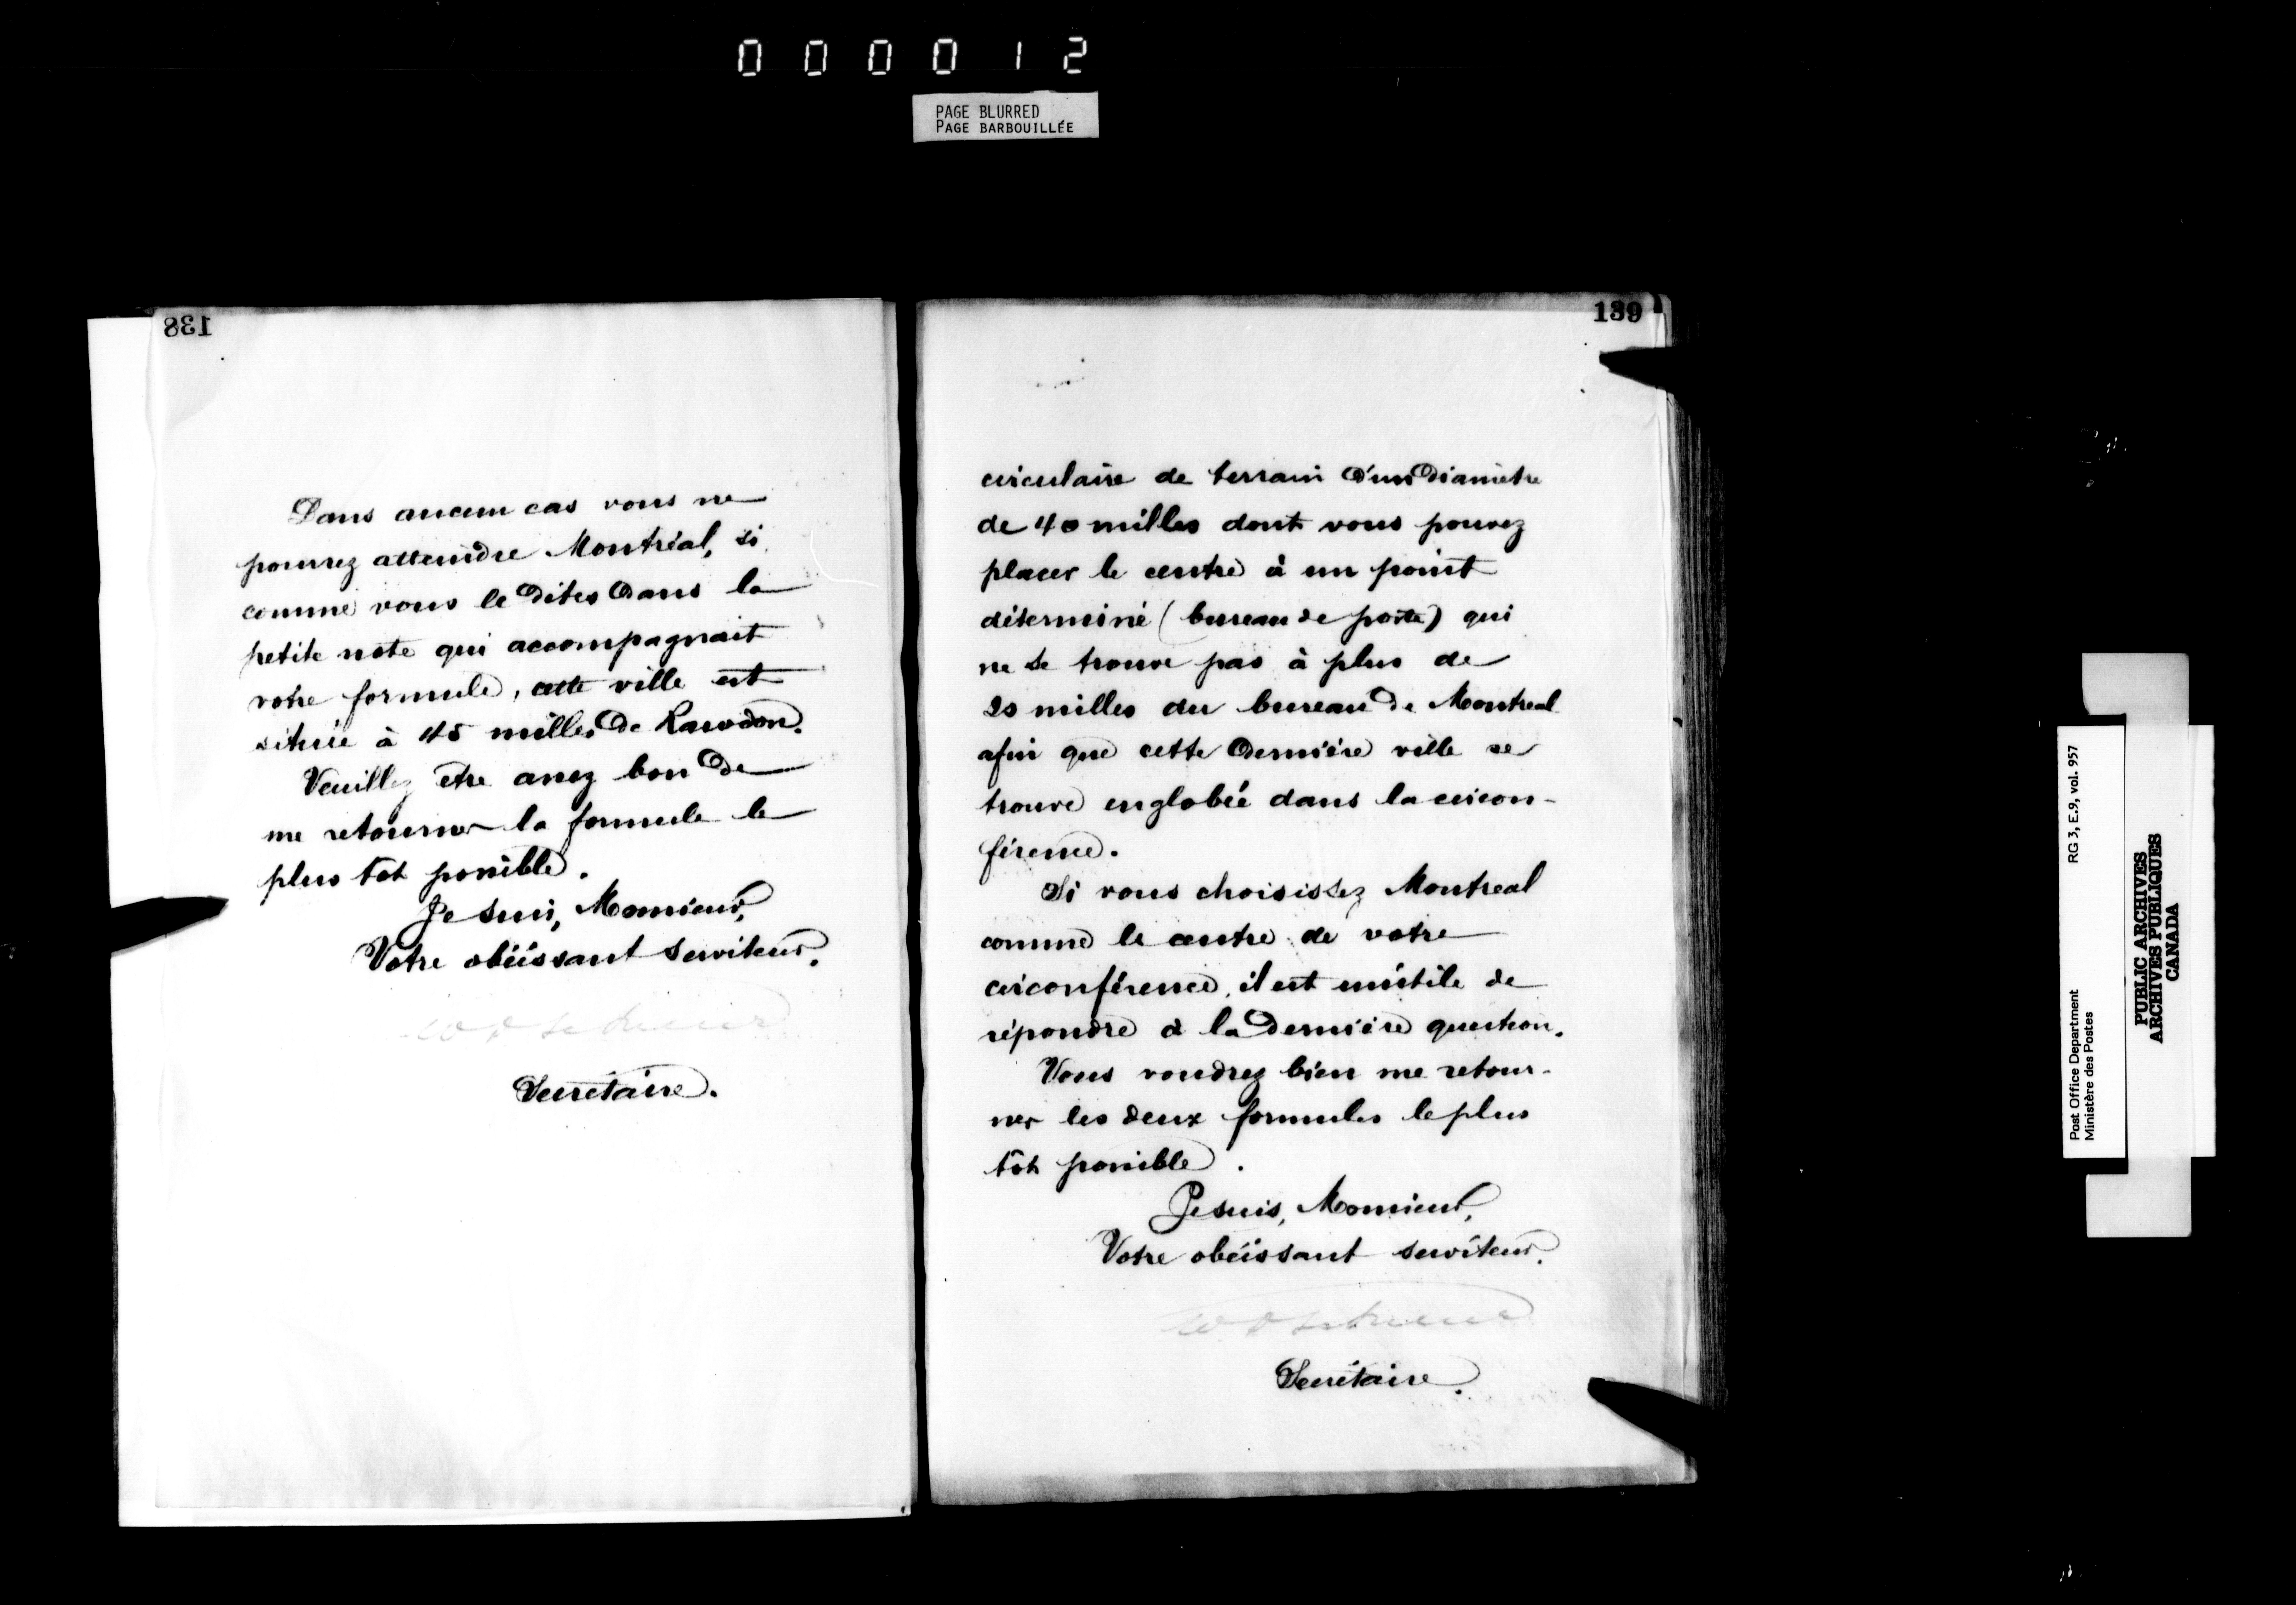 000012
PAGE BLURRED
PAGE BARBOUILLÉE
138
Dans aucun cas vous ne
pourrez atteindre Montréal, si,
comme vous le dites dans la
petite note qui accompagnait
votre formule, cette ville est
située à 45 milles de Rawdon.
Veuillez être assez bon de
me retourner la formule le
plus tôt possible.
Je suis, Monsieur,
Votre obéissant serviteur.
Secrétaire.
139
circulaire de terrain d'un diamètre
de 40 milles dont vous pouvez
placer le centre à un point
déterminé (bureau de poste) qui
ne se trouve pas à plus de
20 milles du bureau de Montreal
afin que cette dernière ville se
trouve englobée dans la circon-
férence.
Si vous choisissez Montreal
comme le centre de votre
circonférence, il est inutile de
répondre à la dernière question.
Vous voudrez bien me retour-
ner les deux formules le plus
tôt possible.
Je suis, Monsieur,
Votre obéissant serviteur.
Secrétaire.
Post Office Department
Ministère des Postes
RG 3, E.9, vol. 957
PUBLIC ARCHIVES
ARCHIVES PUBLIQUES
CANADA